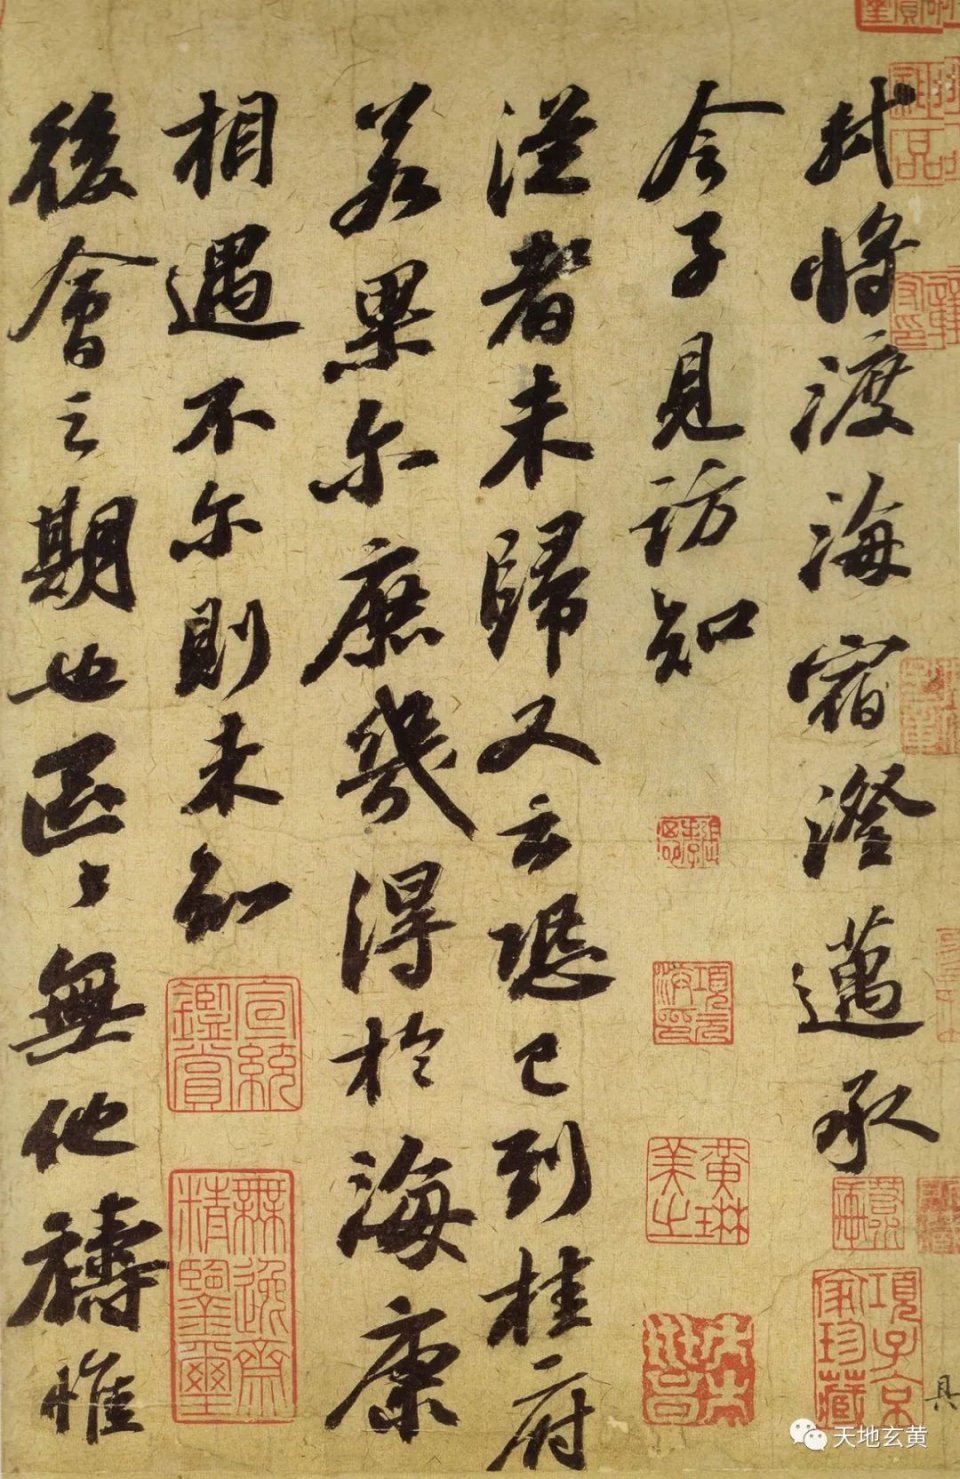 軾將渡海宿澄邁承
令子見訪知
從者未歸又云恐已到桂府
若果尔庶幾得於海康
相遇不尔則未知
後會之期也區〻無他禱惟
神品
項元汴印
黃琳美之
項子京家珍藏
宣統鑑賞
無逸齋精鑒璽
具
天地玄黄